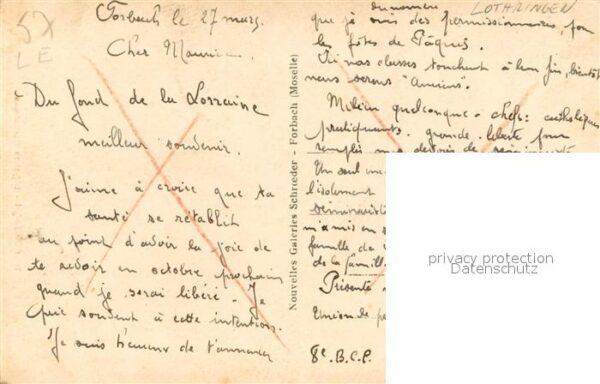 57
LE
Forbach le 27 mars.
Cher Maurice.
Du fond de la Lorraine
meilleur souvenir.
J'aime à croire que ta
santé se rétablit
au point d'avoir la joie de
te revoir en octobre prochain
quand je serai libéré. Je
prie souvent à cette intention.
Je suis heureux de t'annoncer
Nouvelles Galeries Schrœder - Forbach (Moselle)
LOTHRINGEN
du nombre
que je suis des permissionnaires, pour
les fêtes de Pâques.
Ici nos classes touchent à leur fin, bientôt
nous serons "Anciens".
Milieu quelconque. chefs: catholiques
pratiquants. grande liberté pour
remplir mes devoirs de
Un seul
l'isolement
m'a mis en
famille de
de la famill
Présente
Union de
8e B.C.P.
privacy protection
Datenschutz